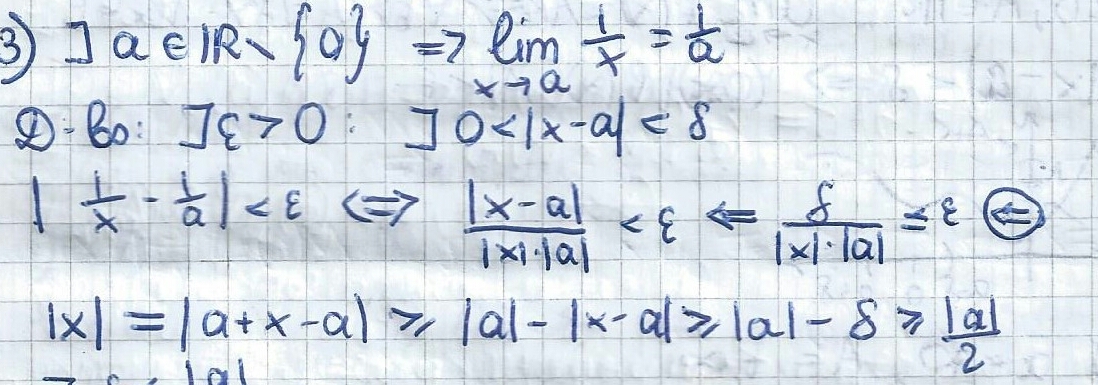 3) ] a ∈ ℝ \ {0} ⇒ lim x→a 1/x = 1/a
Д-во: ]ε > 0 : ] 0 < |x-a| < δ
| 1/x - 1/a | < ε ⇔ |x-a| / |x|·|a| < ε ⇐ δ / |x|·|a| ≤ ε ⇐
|x| = |a+x-a| ≥ |a| - |x-a| ≥ |a| - δ ≥ |a|/2